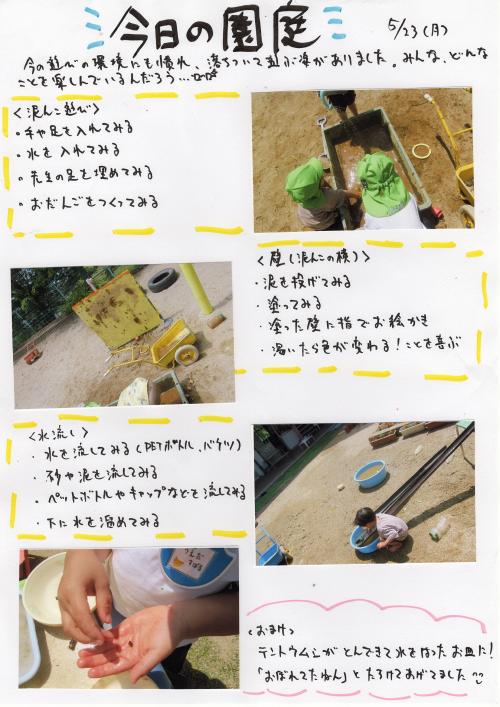 今日の園庭
5/23(月)
今の遊びの環境にも慣れ、落ちついて遊ぶ姿がありました。みんな、どんな
ことを楽しんでいるんだろう…
<泥んこ遊び>
・手や足を入れてみる
・水を入れてみる
・先生の足を埋めてみる
・おだんごをつくってみる
<壁(泥んこの横)>
・泥を投げてみる
・塗ってみる
・塗った壁に指でお絵かき
・渇いたら色が変わる!ことを喜ぶ
<水流し>
・水を流してみる(PETボトル、バケツ)
・砂や泥を流してみる
・ペットボトルやキャップなどを流してみる
・下に水を溜めてみる
<おまけ>
テントウムシがとんできて水をはったお皿に!
「おぼれてたねん」とたすけてあげてました